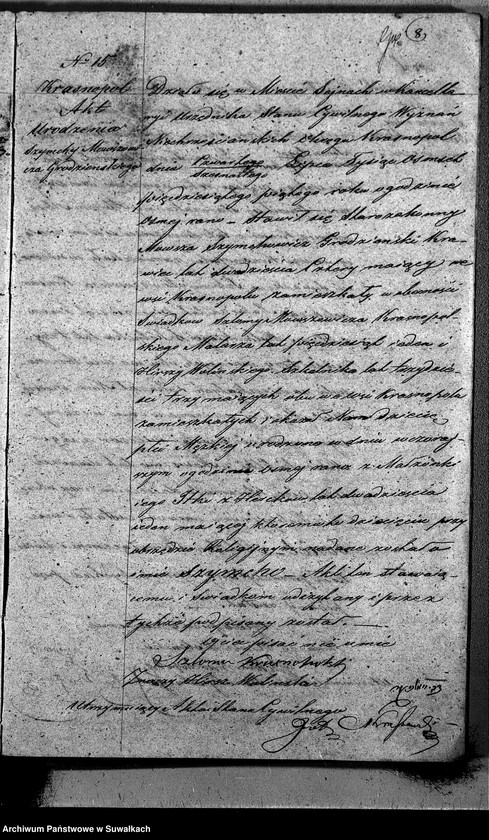 8
No 15
Krasnopol
Akt
Urodzenia
Szymchy Mowszowi
cza Grodzieńskiego
Działo się w Mieście Sejnach w Kancella
ryi Urzędnika Stanu Cywilnego Wyznań
Niechrześciańskich Okręgu Krasnopol
dnia Czwartego
Szesnastego Lipca Tysiąc Ośmset
pięćdziesiątego piątego roku o godzinie
ósmej rano – Stawił się Starozakonny
Mowsza Szymchowicz Grodzieński Kra
wiec lat dwadzieścia Cztery mający we
wsi Krasnopolu zamieszkały, w obecności
Świadków Mowszowicza Krasnopol
skiego Malarza lat pięćdziesiąt jeden i
Szkolnika lat trzydzie
ści trzy mających obu we wsi Krasnopolu
zamieszkałych i okazał Nam dziecię
płci Męzkiej urodzone w dniu wczoraj
szym o godzinie ósmej rano z Małżonki
jego lat dwadzieścia
jeden mającej któremu to dziecięciu przy
obrzędzie Religijnym nadane zostało
imię Szymcho – Akt ten stawają
cemu i Świadkom odczytany i przez
tychże podpisany został. —
Ojciec pisać nie umie
Szloma Krasnopolski
Utrzymujący Akta Stanu Cywilnego
Archiwum Państwowe w Suwałkach